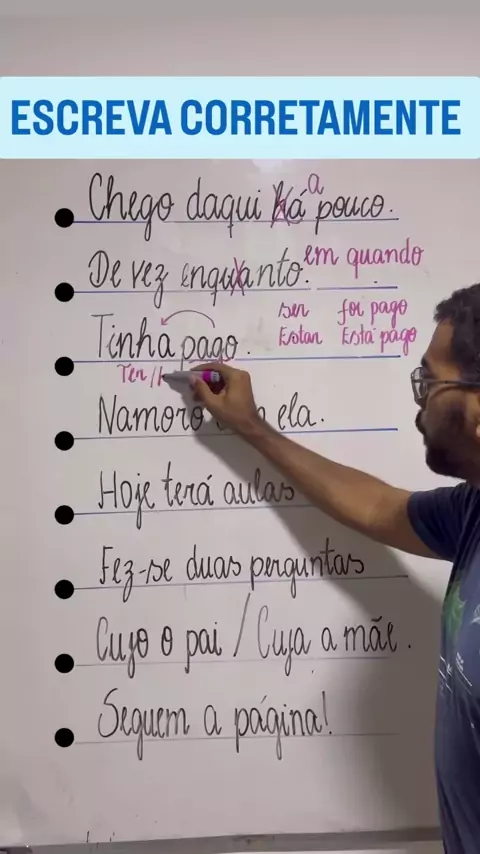 ESCREVA CORRETAMENTE
a
Chego daqui há pouco.
De vez enquanto. em quando
ser foi pago
Tinha pago. Estar Está pago
Ter /
Namoro ela.
Hoje terá aulas
Fez-se duas perguntas
Cujo o pai / Cuja a mãe.
Seguem a página!